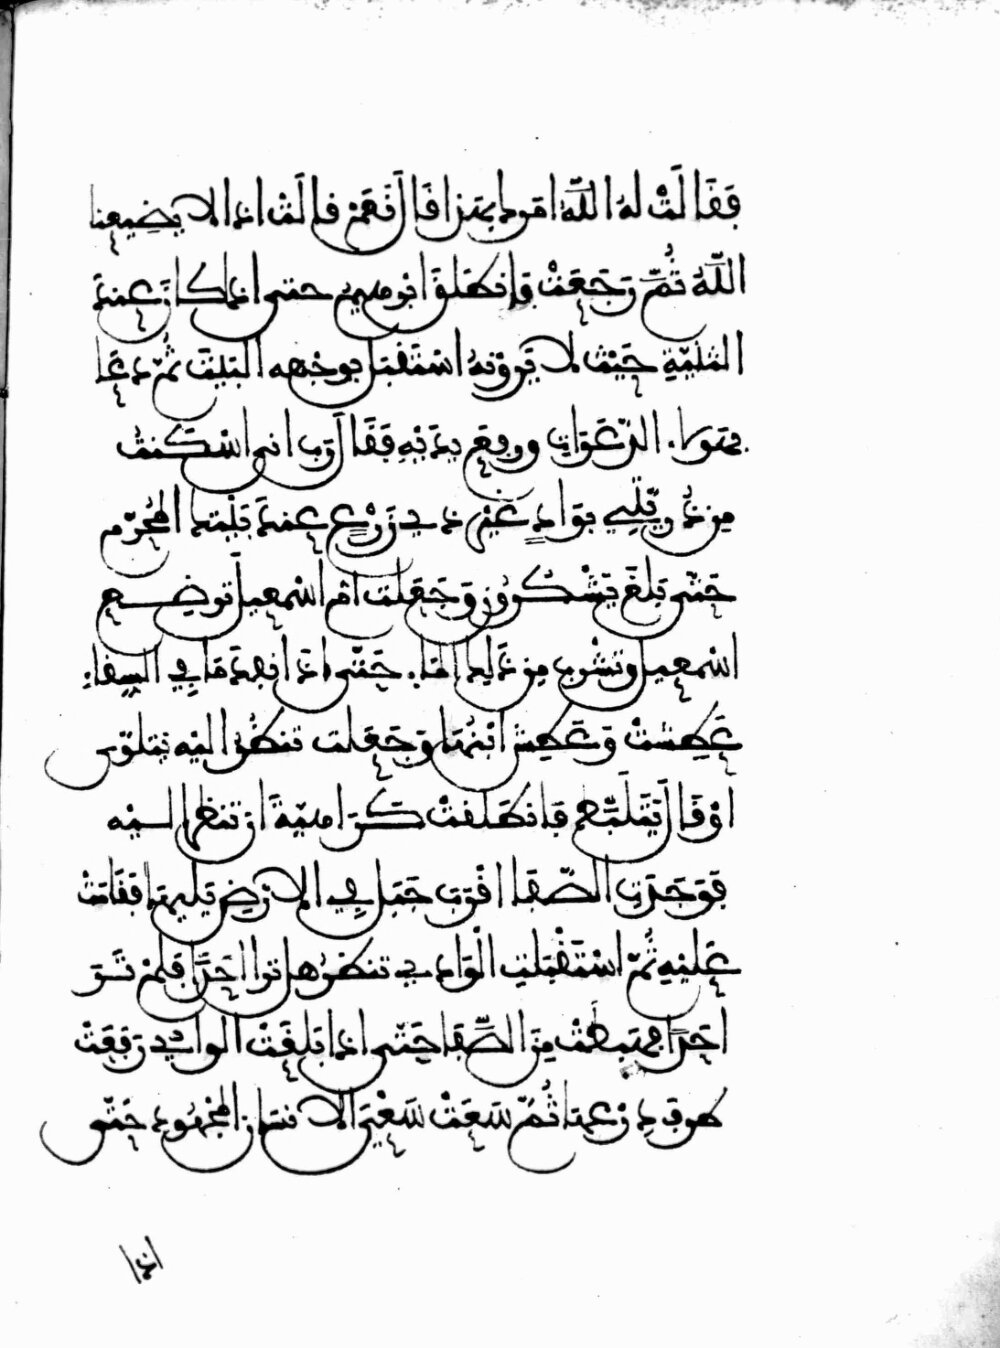 فَقَالَتْ لهُ اللَّهُ امرك بهذا قال نَعَمْ قالَتْ اذا لا يضيعنا
اللَّهُ ثُمَّ رَجَعَتْ فَانطَلَقَ ابرهيم حتى اذا كان عِندَ
الثنيّةِ حَيْثُ لا يَرَوْنَهُ اسْتَقْبَلَ بوجهه البَيْتَ ثُمَّ دعَا
بهولاء الدّعَوَاتِ ورفع يَدَيْهِ فَقَال رَبّ اني اسْكَنتُ
مِن ذُرّيّتِي بوَادٍ غَيْرِ ذي زَرْعٍ عِندَ بَيْتِكَ المحَرّم
حَتّى بَلَغَ يَشْكُرُونَ وَجَعَلت امّ اسْمعيل تُرضِع
اسْمعيل وتشْرب مِن ذَلِكَ الماء حَتّى اذَا نفدَ مَا فِي السّقاء
عَطِشَتْ وَعَطِشَ ابْنُهَا وَجَعَلت تنظُرُ اليْه يَتلَوّى
اوْ قَالَ يَتَلَبَّط فَانطَلَقَتْ كَرَاهِيَةَ ان تنظر اليْه
فَوَجَدَت الصّفا اقْرَبَ جَبَل فِي الارْضِ يَليهَا فَقَامَتْ
عَلَيْهِ ثُمّ اسْتَقْبَلَتِ الْوَادي تنظُرُ هل ترا احَدًا فلمْ تَرَ
احَدًا فهبطت مِنَ الصَّفا حَتّى اذا بَلَغَتْ الوادي رَفعَتْ
طرف دِرْعها ثُمّ سَعَتْ سَعْيَ الانسان المَجْهُود حَتّى